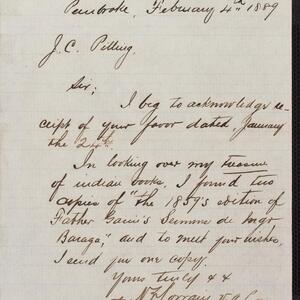 Pembroke, February 4th 1889
J. C. Pilling.
Sir;
I beg to acknowledge re-
ceipt of your favor dated, January
the 24th.
In looking over my treasure
of indian books, I found two
copies of "the 1859's edition of
Father Sermone de Mgr
Baraga," and to meet your wishes,
I send you one copy.
Yours truly &&
N. Z. Lorrain